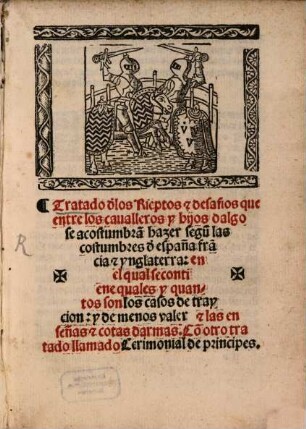 ¶ Tratado d̃los Rieptos ⁊ desafios que
entre los caualleros y hijos dalgo
se acostumbrã hazer segũ las
costumbres d̃ españa frã
cia ⁊ ynglaterra: en
el qual se conti
ene quales y quan-
tos son los casos de tray
cion: y de menos valer ⁊ las en
señas ⁊ cotas darmas. Cõ otro tra
tado llamado Cerimonial de principes.
R